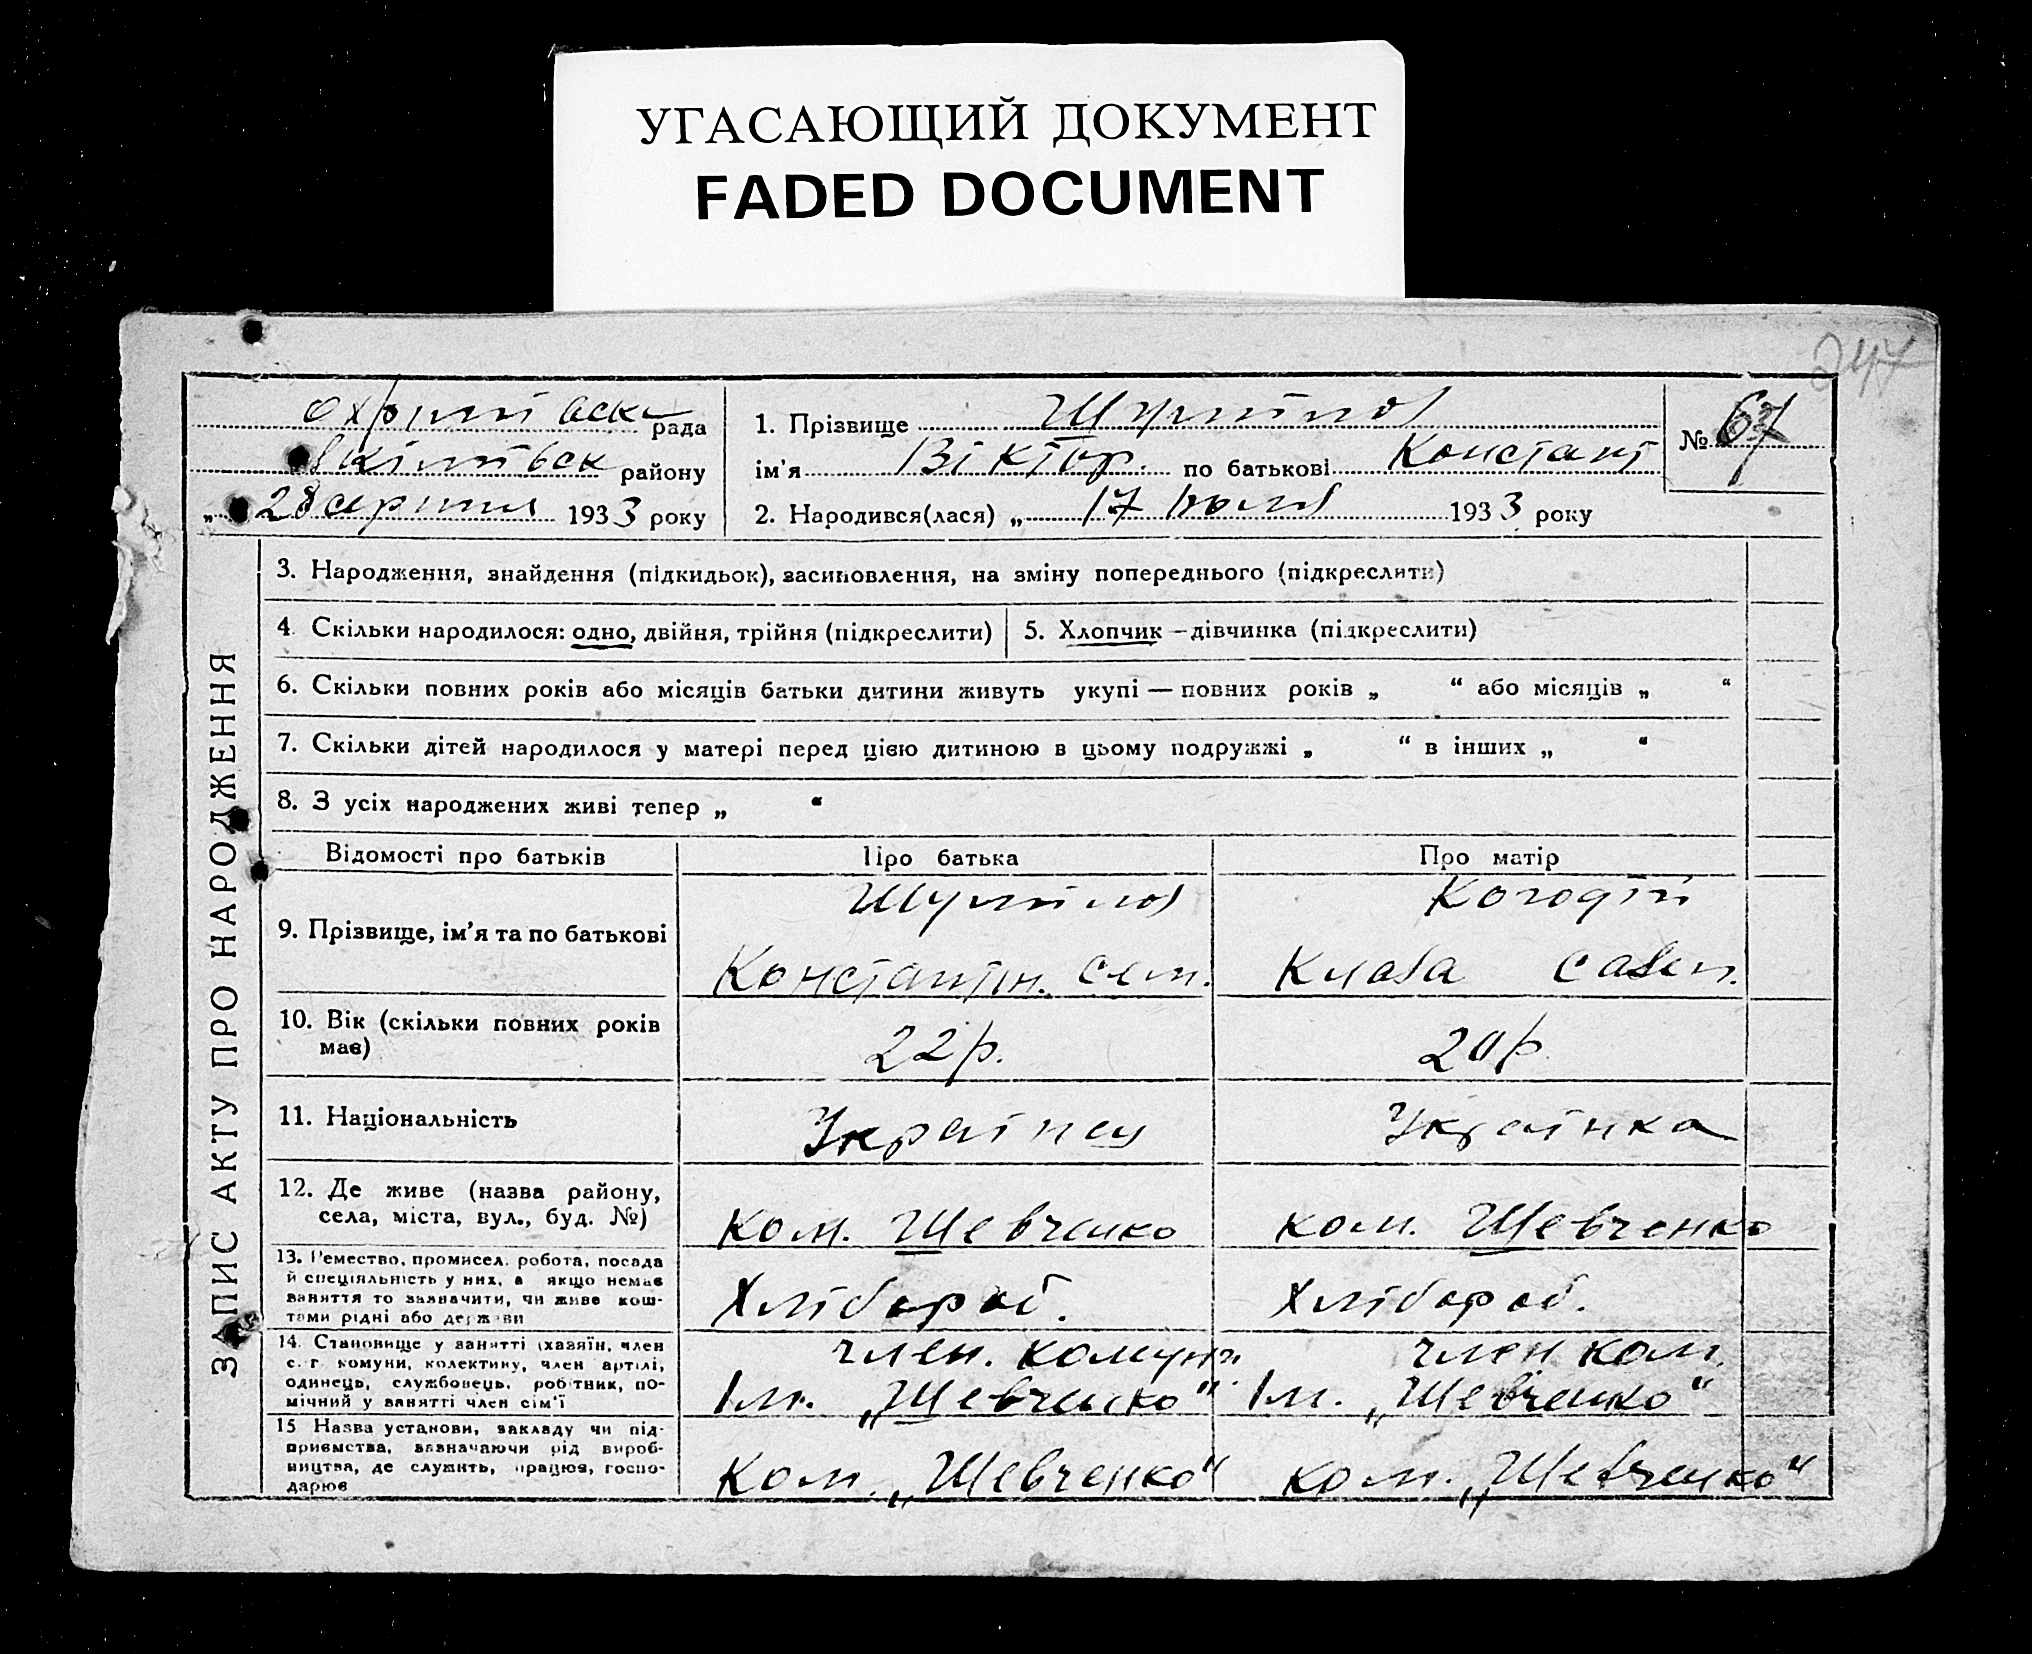 УГАСАЮЩИЙ ДОКУМЕНТ
FADED DOCUMENT
247
Охрімівска рада
Якімівск району
„ 28 серпня 1933 року
1. Прізвище Шумілов
ім'я Віктор. по батькові Констант
2. Народився(лася) „ 17 1933 року
№ 67
ЗАПИС АКТУ ПРО НАРОДЖЕННЯ
3. Народження, знайдення (підкидьок), засиновлення, на зміну попереднього (підкреслити)
4. Скільки народилося: одно, двійня, трійня (підкреслити)
5. Хлопчик — дівчинка (підкреслити)
6. Скільки повних років або місяців батьки дитини живуть укупі — повних років „ “ або місяців „ “
7. Скільки дітей народилося у матері перед цією дитиною в цьому подружжі „ “ в інших „ “
8. З усіх народжених живі тепер „ “
Відомості про батьків
Про батька
Про матір
9. Прізвище, ім'я та по батькові
Шумілов
Константін. Сем.
Клава Савел.
10. Вік (скільки повних років
має)
22 р.
20 р.
11. Національність
Українец
Українка
12. Де живе (назва району,
села, міста, вул., буд. №)
ком. Шевченко
ком. Шевченко
13. Ремество, промисел, робота, посада
й спеціяльність у них, а якщо немає
заняття то зазначити, чи живе кош-
тами рідні або держави
Хлібороб.
Хлібороб.
14. Становище у занятті (хазяїн, член
с.-г комуни, колективу, член артілі,
одинець, службовець, робітник, по-
мічний у занятті член сім'ї
член. комуни
Ім. „Шевченко“
член ком.
Ім. „Шевченко“
15 Назва установи, закладу чи під-
приємства, зазначаючи рід вироб-
ництва, де служить, працює, госпо-
дарює
Ком. „Шевченко“
ком. „Шевченко“